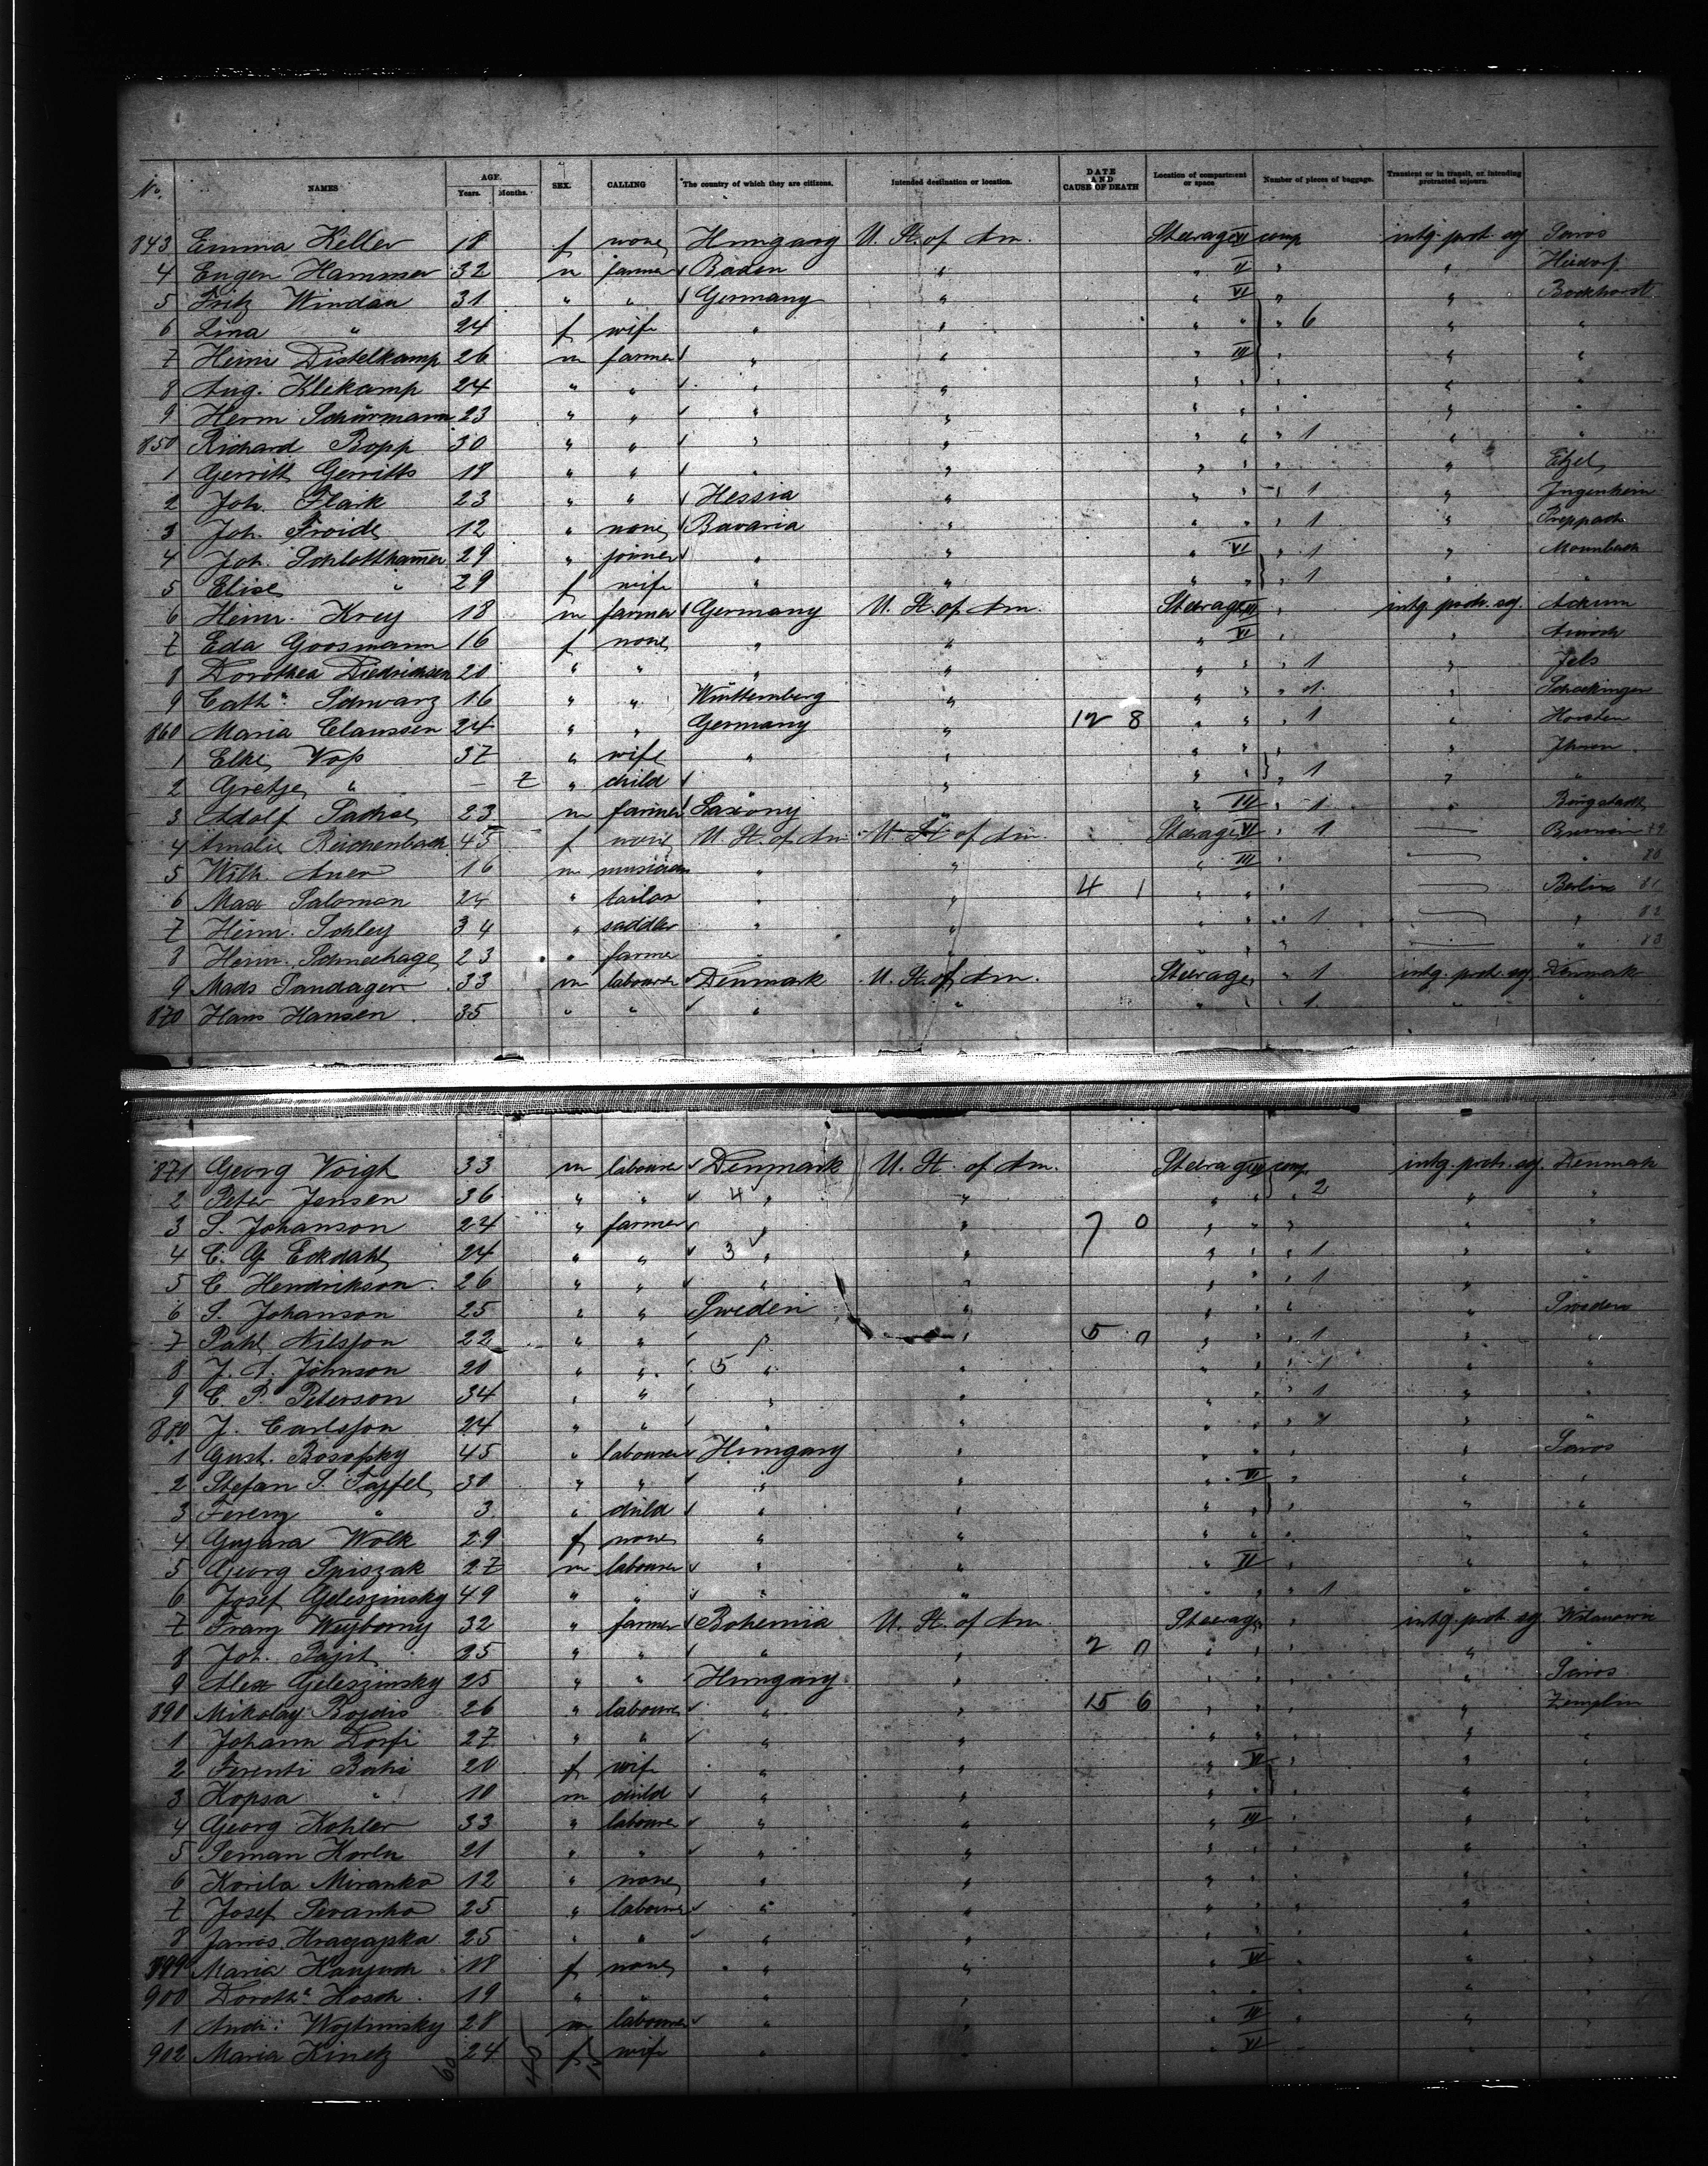 No. NAMES AGE. Years. Months. SEX. CALLING The country of which they are citizens. Intended destination or location. DATE AND CAUSE OF DEATH Location of compartment or space Number of pieces of baggage. Transient or in transit, or intending protracted sojourn.
843 Emma Keller 18 f none Hungary U. St. of Am. Steerage VI comp intg. prot. soj Saros
4 Eugen Hammer 32 m farmer Baden " " II " "
5 Fritz Windau 31 " " Germany " " VI " " Bockhorst
6 Lina " 24 f wife " " " " " 6 " "
7 Heinr Distelkamp 26 m farmer " " " III " " "
8 Aug. Klekamp 24 " " " " " " " "
9 Herm Schürmann 23 " " " " " " " "
850 Richard Bopp 30 " " " " " " " 1 " "
1 Gerritt Gerritts 18 " " " " " " " Etzel
2 Joh. Flark 23 " " Hessia " " " " 1 " Jugenheim
3 Joh. 12 " none Bavaria " " " " 1 " Preppach
4 Joh. Schlotthamer 29 " joiner " " " VI " 1 "
5 Elise " 29 f wife " " " " " 1 " "
6 Heinr. Krey 18 m farmer Germany U. St. of Am. Steerage " intg. prot. soj.
7 Eda Goosmann 16 f none " " " VI " " Aurich
8 Dorothea Diedrichsen 20 " " " " " " " 1 " Jels
9 Cath.a Schwarz 16 " " Württemberg " " " " 1. "
860 Maria Claussen 24 " " Germany " 12 8 " " " 1 " Horsten
1 Elke Voß 37 " wife " " " " "
2 Gretje " — 7 " child " " " " " 1 " "
3 Adolf 23 m farmer Saxony " " III " 1 "
4 Amalie Reichenbach 45 f none U. St. of Am U. St. of Am. Steerage VI " 1 — Bremen 79
5 Wilh. Auer 16 m musician " " " III " — " 80
6 Max Salomon 24 " tailor " " 4 1 " " " — Berlin 81
7 Heinr. Schley 34 " saddler " " " " " 1 — " 82
8 Heinr. Schneehage 23 " farmer " " " " " — " 83
9 Mads Sandager 33 m labourer Denmark U. St. of Am. Steerage " 1 intg. prot. soj. Denmark
870 Hans Hansen 35 " " " " " " " 1. " "
871 Georg Voigt 33 m labourer Denmark U. St. of Am. Steerage comp intg. prot. soj. Denmark
2 Peter Jensen 36 " " 4 " " " " " 2 " "
3 S. Johanson 24 " farmer " " 7 0 " " " " "
4 C. G. Eckdahl 24 " " 3 " " " " " 1 " "
5 C Hendrikson 26 " " " " " " " 1 " "
6 S. Johanson 25 " " Sweden " " " " " Sweden
7 Pahl Nilsson 22 " " " " 5 0 " " " 1 " "
8 J. A. Johnson 20 " " 5 " " " " " 1 " "
9 C. P. Peterson 34 " " " " " " " 1 " "
880 J. Carlsson 24 " " " " " " " 1 " "
1 Gust. Bosofsky 45 " labourer Hungary " " " " " Saros
2 Stefan S. 30 " " " " " VI " " "
3 Ferenz " 3 " child " " " " " " "
4 Wolk 29 f none " " " " " " "
5 Georg Spiszak 27 m labourer " " " II " " "
6 Josef Geleszinsky 49 " " " " " " " 1 " "
7 Franz Weyborny 32 " farmer Bohemia U. St. of Am Steerage " intg. prot. soj
8 Joh. Pajit 25 " " " " 2 0 " " " " "
9 Alex Geleszinsky 25 " " Hungary " " " " " Saros
890 Mikolay Bojdis 26 " labourer " " 15 6 " " " " Zemplin
1 Johann Dorfi 27 " " " " " " " " "
2 Ferenti Bahi 20 f wife " " " VI " " "
3 Kopsa " 10 m child " " " " " " "
4 Georg Kohler 33 " labourer " " " III " " "
5 Seman Korlu 21 " " " " " " " " "
6 Korila Miranko 12 " none " " " " " " "
7 Josef Sivanko 25 " labourer " " " " " " "
8 Janos 25 " " " " " " " " "
899 Maria 18 f none " " " VI " " "
900 Doroth.a Hosch 19 " " " " " " " " "
1 Andr. Wojtinsky 28 m labourer " " " III " " "
902 Maria 24 f wife " " " VI " " "
60 45 15